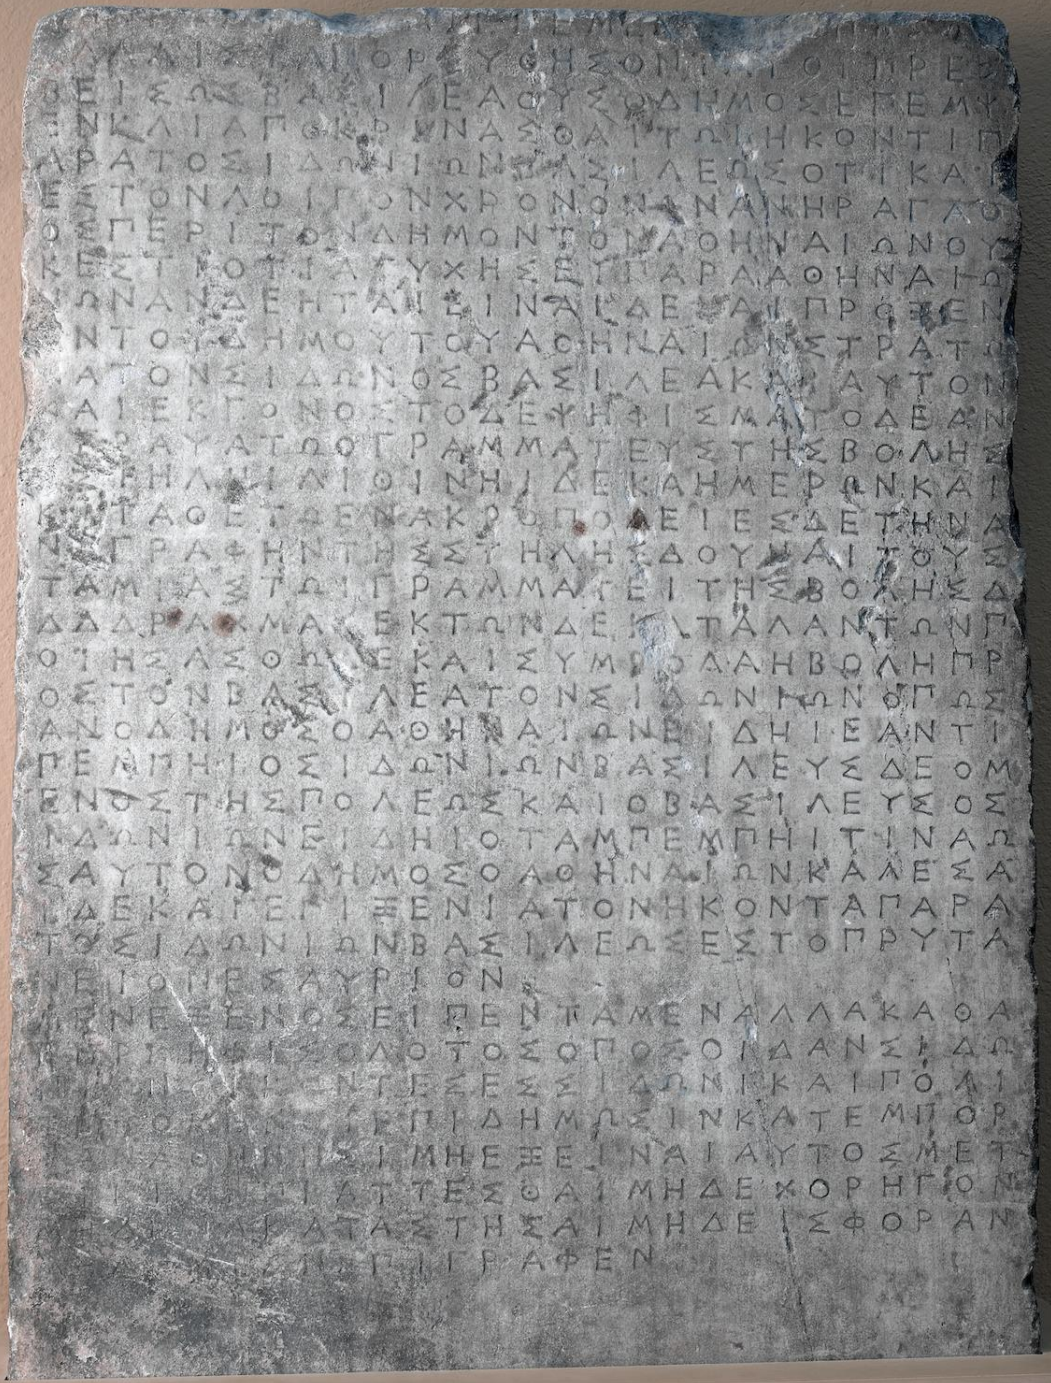 ΛΛΙΣΤΑΠΟΡΕΥΘΗΣΟΝΤΑΙΟΙΠΡΕΣ
ΒΕΙΣΩΣΒΑΣΙΛΕΑΟΥΣΟΔΗΜΟΣΕΠΕΜΨ
ΕΝΚΑΙΑΠΟΚΡΙΝΑΣΘΑΙΤΩΙΗΚΟΝΤΙΠ
ΑΡΑΤΟΣΙΔΩΝΙΩΝΒΑΣΙΛΕΩΣΟΤΙΚΑΙ
ΕΣΤΟΝΛΟΙΠΟΝΧΡΟΝΟΝΩΝΑΝΗΡΑΓΑΘΟ
ΣΠΕΡΙΤΟΝΔΗΜΟΝΤΟΝΑΘΗΝΑΙΩΝΟΥ
ΚΕΣΤΙΟΤΙΑΤΥΧΗΣΕΙΠΑΡΑΑΘΗΝΑΙΩ
ΝΩΝΑΝΔΕΗΤΑΙΕΙΝΑΙΔΕΚΑΙΠΡΟΞΕΝ
ΟΝΤΟΥΔΗΜΟΥΤΟΥΑΘΗΝΑΙΩΝΣΤΡΑΤΩ
ΝΑΤΟΝΣΙΔΩΝΟΣΒΑΣΙΛΕΑΚΑΙΑΥΤΟΝ
ΚΑΙΕΚΓΟΝΟΣΤΟΔΕΨΗΦΙΣΜΑΤΟΔΕΑΝ
ΑΓΡΑΨΑΤΩΟΓΡΑΜΜΑΤΕΥΣΤΗΣΒΟΛΗΣ
ΕΣΤΗΛΗΙΛΙΘΙΝΗΙΔΕΚΑΗΜΕΡΩΝΚΑΙ
ΚΑΤΑΘΕΤΩΕΝΑΚΡΟΠΟΛΕΙΕΣΔΕΤΗΝΑ
ΝΑΓΡΑΦΗΝΤΗΣΣΤΗΛΗΣΔΟΥΝΑΙΤΟΥΣ
ΤΑΜΙΑΣΤΩΙΓΡΑΜΜΑΤΕΙΤΗΣΒΟΛΗΣΔ
ΔΔΔΡΑΧΜΑΣΕΚΤΩΝΔΕΚΑΤΑΛΑΝΤΩΝΠ
ΟΙΗΣΑΣΘΩΔΕΚΑΙΣΥΜΒΟΛΑΗΒΟΛΗΠΡ
ΟΣΤΟΝΒΑΣΙΛΕΑΤΟΝΣΙΔΩΝΙΩΝΟΠΩΣ
ΑΝΟΔΗΜΟΣΟΑΘΗΝΑΙΩΝΕΙΔΗΙΕΑΝΤΙ
ΠΕΜΠΗΙΟΣΙΔΩΝΙΩΝΒΑΣΙΛΕΥΣΔΕΟΜ
ΕΝΟΣΤΗΣΠΟΛΕΩΣΚΑΙΟΒΑΣΙΛΕΥΣΟΣ
ΙΔΩΝΙΩΝΕΙΔΗΙΟΤΑΜΠΕΜΠΗΙΤΙΝΑΩ
ΣΑΥΤΟΝΟΔΗΜΟΣΟΑΘΗΝΑΙΩΝΚΑΛΕΣΑ
ΙΔΕΚΑΙΕΠΙΞΕΝΙΑΤΟΝΗΚΟΝΤΑΠΑΡΑ
ΤΟΣΙΔΩΝΙΩΝΒΑΣΙΛΕΩΣΕΣΤΟΠΡΥΤΑ
ΝΕΙΟΝΕΣΑΥΡΙΟΝ
ΜΕΝΕΞΕΝΟΣΕΙΠΕΝΤΑΜΕΝΑΛΛΑΚΑΘΑ
ΠΕΡΚΗΦΙΣΟΔΟΤΟΣΟΠΟΣΟΙΔΑΝΣΙΔΩ
ΝΙΩΝΟΙΚΟΝΤΕΣΕΣΣΙΔΩΝΙΚΑΙΠΟΛΙ
ΤΕΥΟΜΕΝΟΙΕΠΙΔΗΜΩΣΙΝΚΑΤΕΜΠΟΡ
ΙΑΝΑΘΗΝΗΣΙΜΗΕΞΕΙΝΑΙΑΥΤΟΣΜΕΤ
ΟΙΚΙΟΝΠΡΑΤΤΕΣΘΑΙΜΗΔΕΧΟΡΗΓΟΝ
ΜΗΔΕΝΑΚΑΤΑΣΤΗΣΑΙΜΗΔΕΙΣΦΟΡΑΝ
ΜΗΔΕΜΙΑΝΕΠΙΓΡΑΦΕΝ